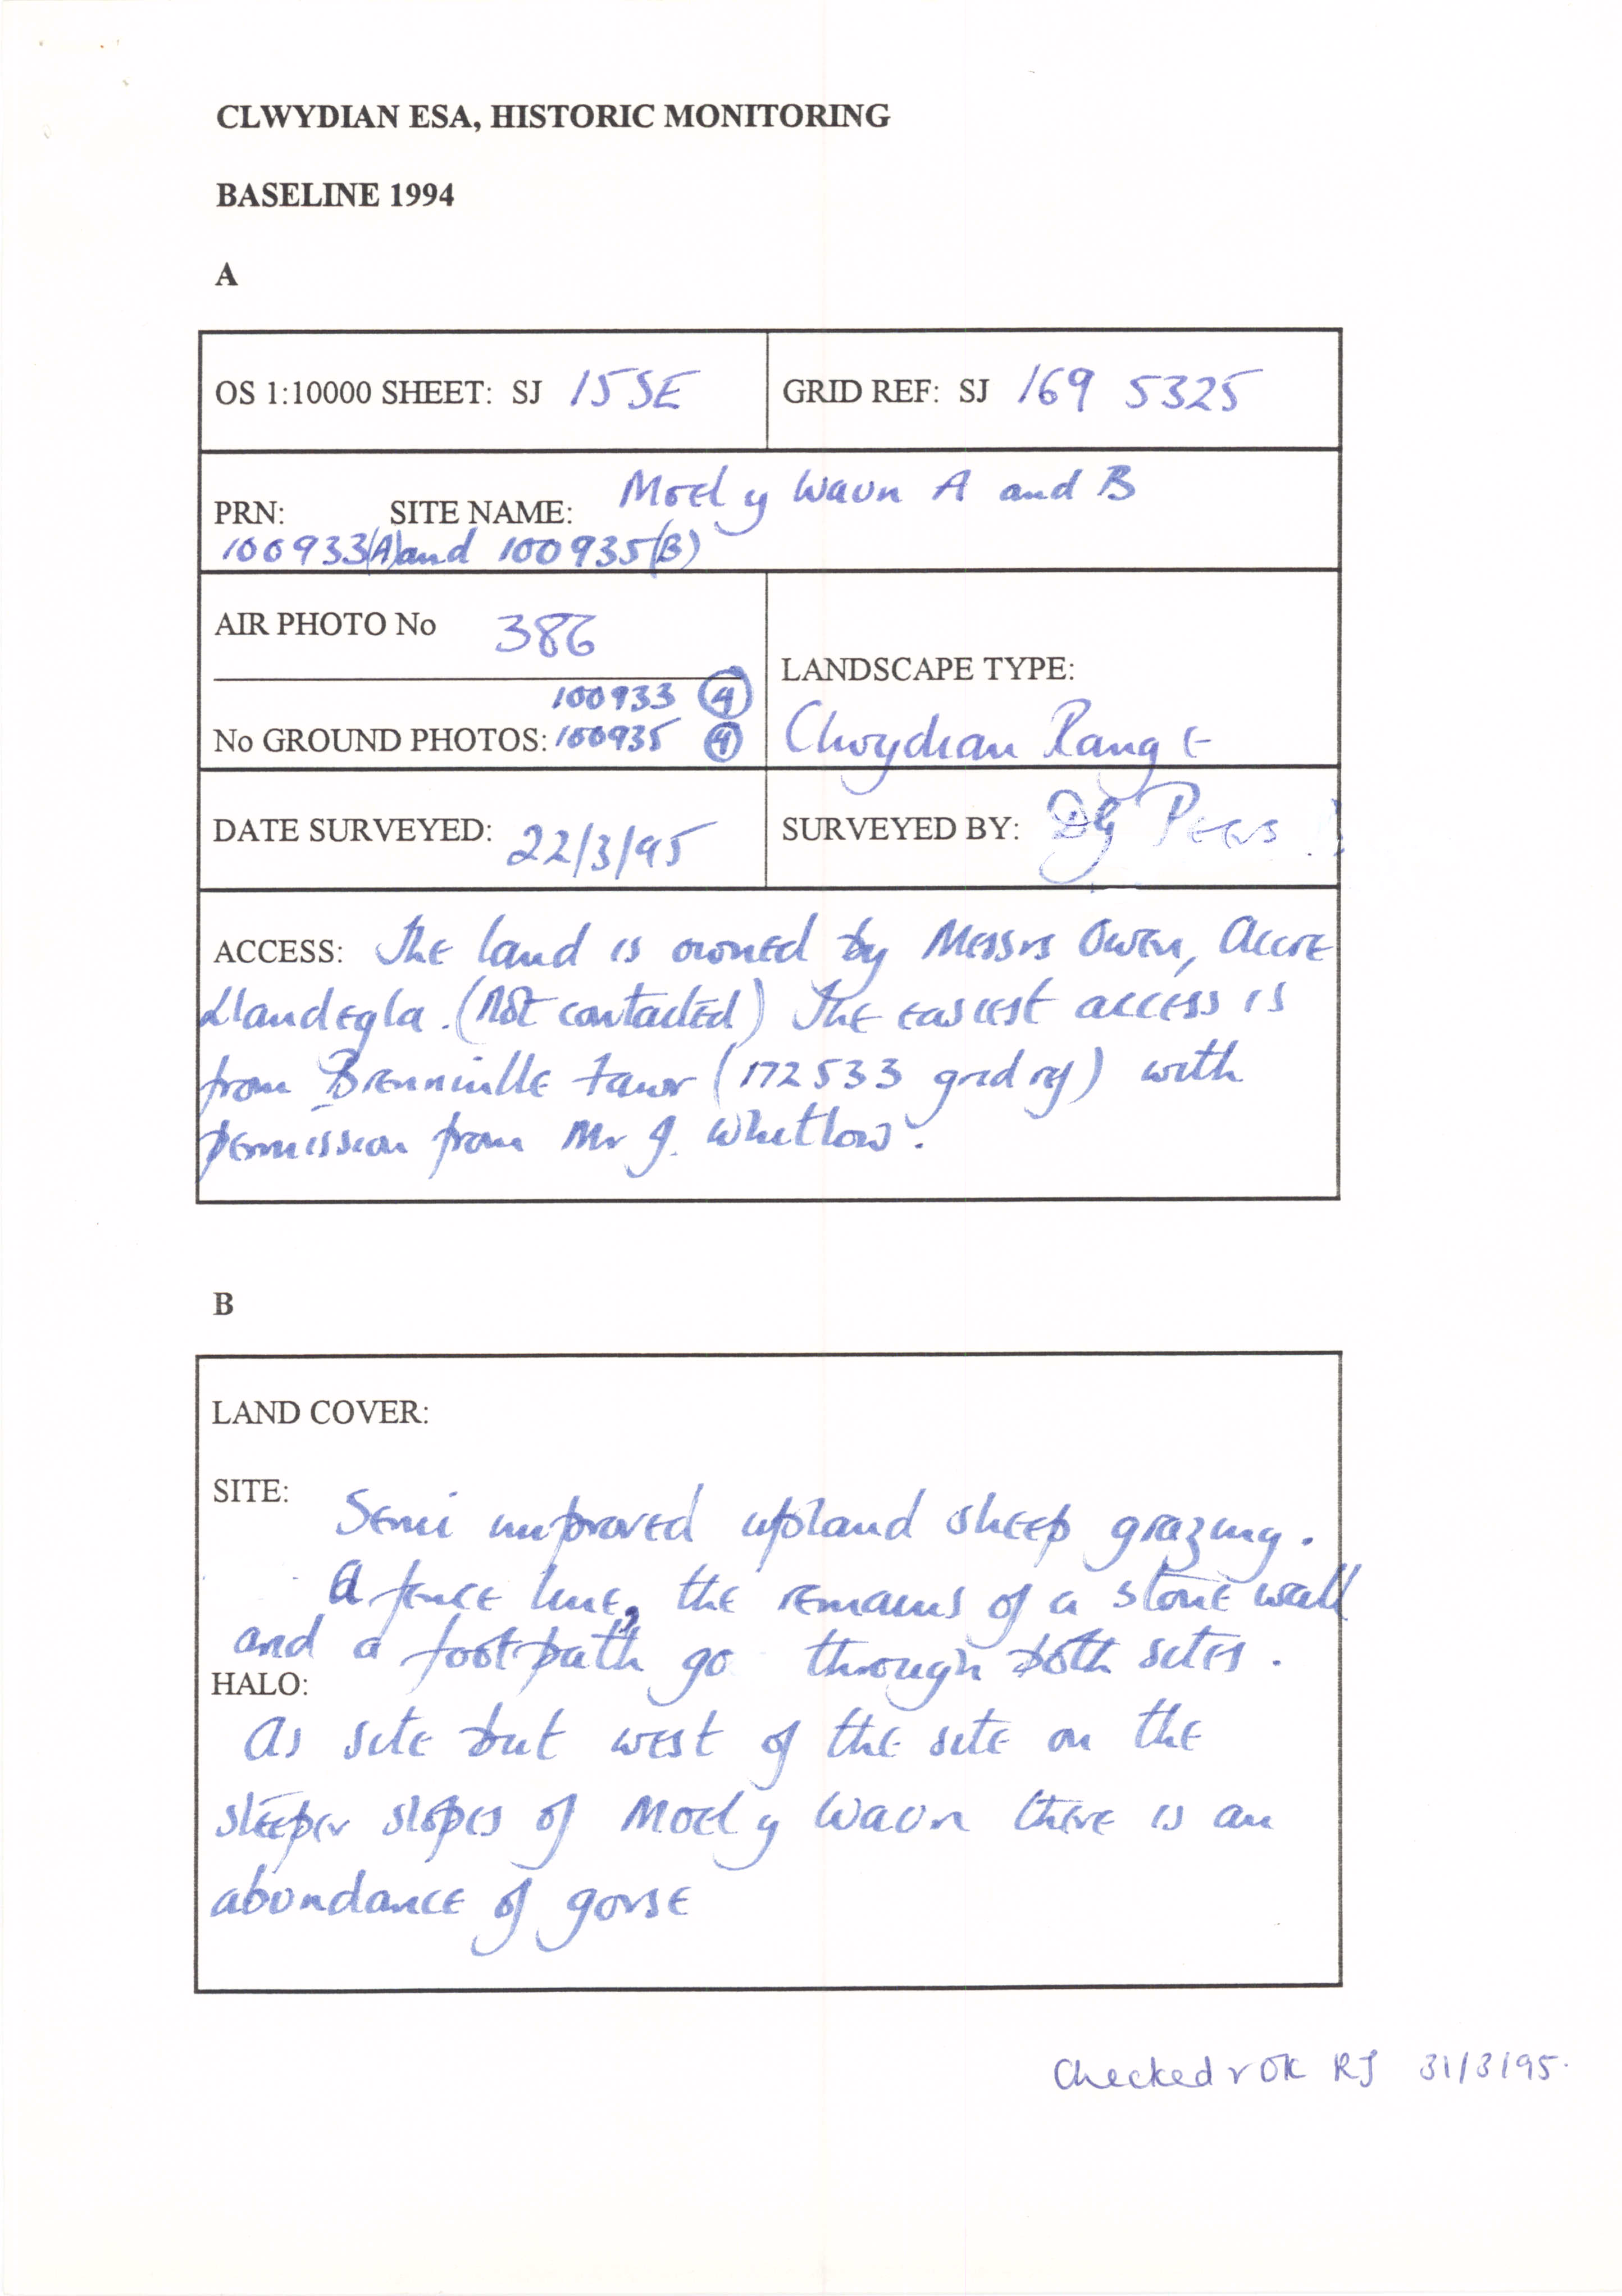 CLWYDIAN ESA, HISTORIC MONITORING
BASELINE 1994
A
OS 1:10000 SHEET: SJ 15SE
GRID REF: SJ 169 5325
PRN: SITE NAME: Moel y Waun A and B
100933(A) and 100935(B)
AIR PHOTO No 386
100933 (4)
No GROUND PHOTOS: 100935 (4)
LANDSCAPE TYPE:
Clwydian Range
DATE SURVEYED: 22/3/95
SURVEYED BY: DG
ACCESS: The land is owned by Messrs Owen,
Llandegla. (Not contacted) The easiest access is
from (172 533 grid ref) with
permission from Mr J. Whitlow.
B
LAND COVER:
SITE:
Semi improved upland sheep grazing.
A fence line, the remains of a stone wall
and a footpath go through both sites.
HALO:
As site but west of the site on the
steeper slopes of Moel y Waun there is an
abundance of gorse
Checked & OK RJ 31/3/95.